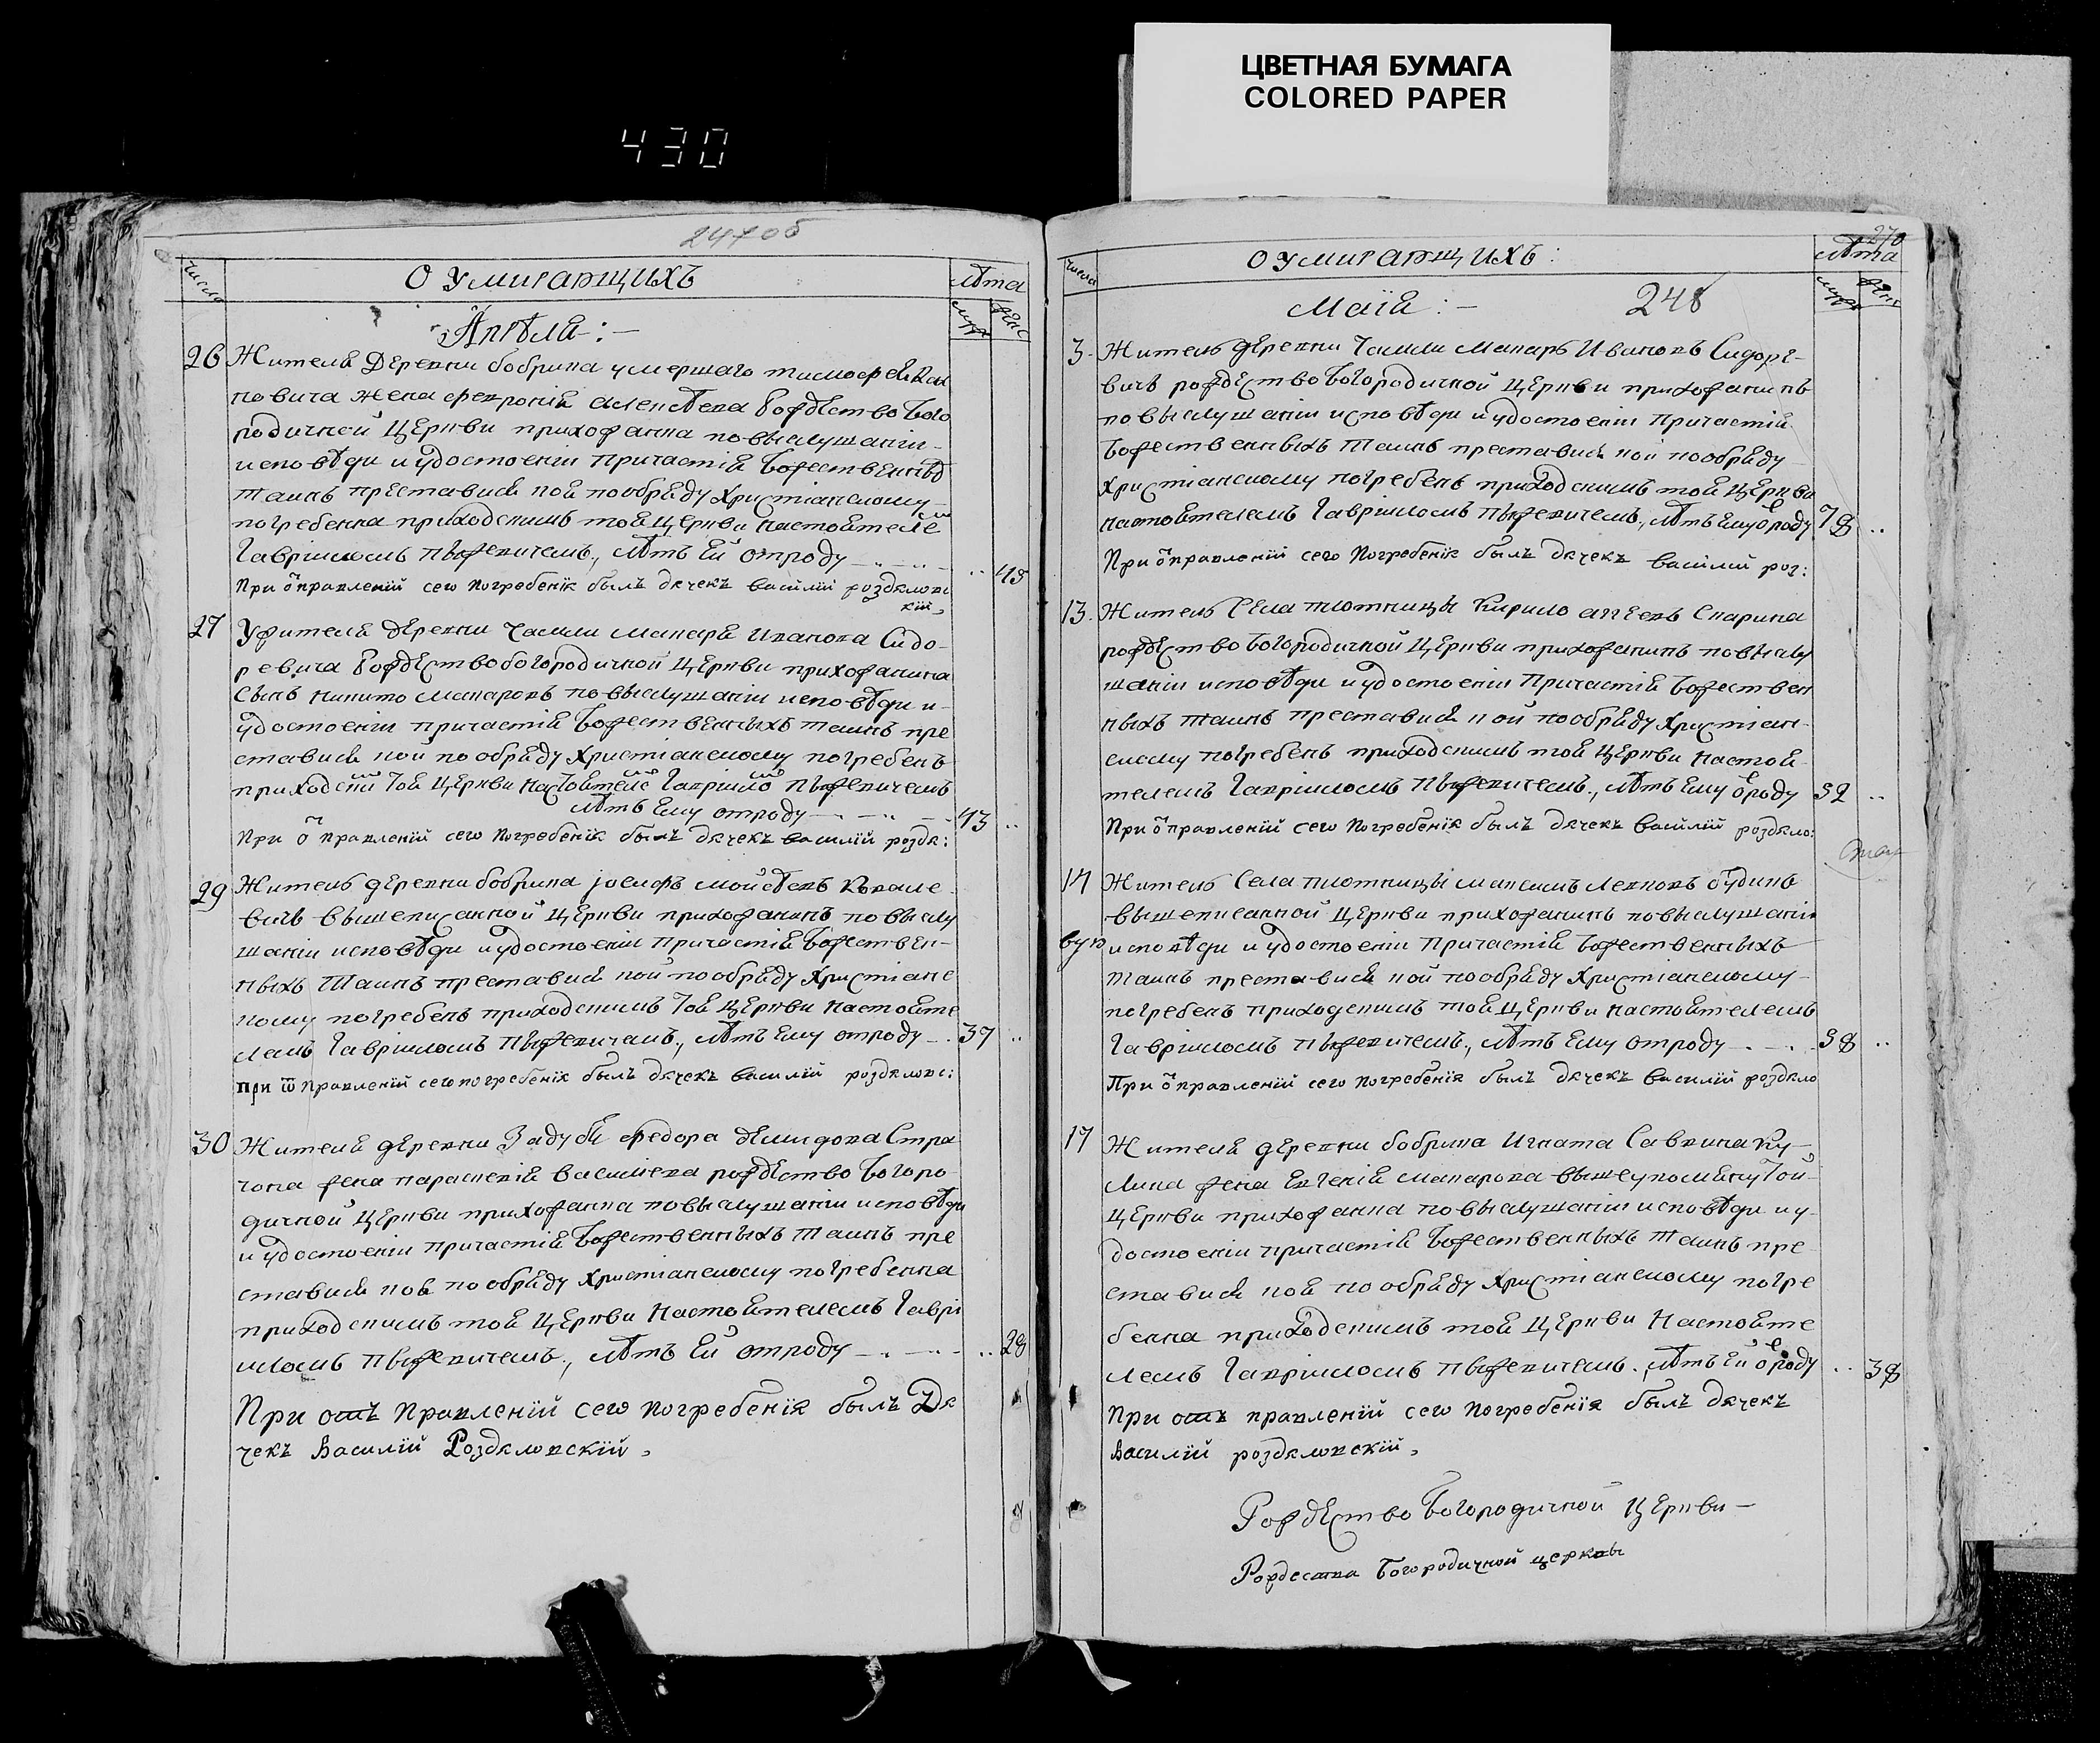 ЦВЕТНАЯ БУМАГА
COLORED PAPER
430
247об
число
О Умирающихъ
лѣта
муж
женс
Апрѣля :-
26 Жителя Деревни бобрина умершаго тимофея
новича жена февронія алексѣева Рождество Бого
родичной Церкви прихожанка повыслушаніи
исповѣди и удостоеніи Причастія Божественных
таинъ преставися коя пообряду Христіанскому
погребенна приходскимъ тоя Церкви Настоятеле
Гавріиломъ Пыжевичемъ, лѣтъ Ей отроду 45
При ѿправленій сего погребенія былъ дячекъ василій роздяловс
кій,
27 Ужителя деревни Чамли макара иванова Сидо-
ревича Рождествобогородичной Церкви прихожанина
Сынъ никито макаровъ повыслушаніи исповѣди и-
удостоеніи причастія Божественныхъ таинъ пре
ставися кой по обряду Христіанскому погребенъ
приходски Тоя Церкви Настоятеле Гавріило Пыжевичемъ
лѣтъ Ему отроду 13
При ѿправленій сего погребенія былъ дячекъ василій роздя:
29 Житель деревни бобрина іосифъ мойсѣевъ Ковале
вичъ вышеписанной Церкви прихожанинъ повыслу
шаніи исповѣди и удостоеніи Причастія Божествен-
ныхъ Таинъ преставися кой пообряду Христіанс
кому погребенъ приходскимъ Тоя Церкви Настояте
лемъ Гавріиломъ Пыжевичемъ, лѣтъ Ему отроду 37
при ѿправленій сего погребенія былъ дячекъ василій роздяловс:
30 Жителя деревни Задубя федора демидова Стра
чона жена параскевія василіева рождество Богоро
дичной Церкви прихожанка повыслушаніи исповѣди
и удостоеніи причастія Божественныхъ таинъ пре
ставися коя пообряду Христіанскому погребенна
приходскимъ тоя Церкви Настоятелемъ Гаврі
иломъ Пыжевичемъ, лѣтъ Ей отроду 28
При отъ правленій сего погребенія былъ Дя
чекъ Василій Роздяловскій,
число
О умирающихъ:
270
лѣта
муж
женс
Маія :-
248
3. Житель деревни Чамли макаръ Ивановъ Сидоре-
вичъ рождествоБогородичной Церкви прихожанинъ
повыслушаніи исповѣди и удостоеніи Причастія
Божественныхъ таинъ преставися кой пообряду
Христіанскому погребенъ приходскимъ тоя Церкви
настоятелемъ Гавріиломъ Пыжевичемъ, лѣтъ Ему ѿроду 78
При ѿправленій сего погребенія былъ дячекъ василій роз:
13. Житель Села плотницы Кирило Скарина
рождествоБогородичной Церкви прихожанинъ повыслу
шаніи исповѣди и удостоеніи Причастія Божествен
ныхъ таинъ преставися кой пообряду Христіан-
скому погребенъ приходскимъ тоя Церкви Настоя-
телемъ Гавріиломъ Пыжевичемъ, лѣтъ Ему ѿроду 32
При ѿправленій сего погребенія былъ дячекъ василій роздяло:
14 Житель Села плотницы максимъ Леоновъ будикъ
вышеписанной Церкви прихожанинъ повыслушаніи
исповѣди и удостоеніи Причастія Божественныхъ
таинъ преставися кой пообряду Христіанскому
погребенъ приходскимъ тоя Церкви настоятелемъ
Гавріиломъ Пыжевичемъ, лѣтъ Ему отроду 38
При ѿправленій сего погребенія былъ дячекъ василій роздяло
17 Жителя деревни бобрина Игната Саввина Ку-
лика жена Евгенія макарова вышеупомянутой
Церкви прихожанка повыслушаніи исповѣди и у-
достоеніи причастія Божественныхъ таинъ пре-
ставися коя пообряду Христіанскому погре
бенна приходскимъ тоя Церкви Настояте
лемъ Гавріиломъ Пыжевичемъ, лѣтъ Ей ѿроду 38
При отъ правленій сего погребенія былъ дячекъ
василій роздяловскій,
Рождество Богородичной Церкви -
Рождества Богородичной церквы